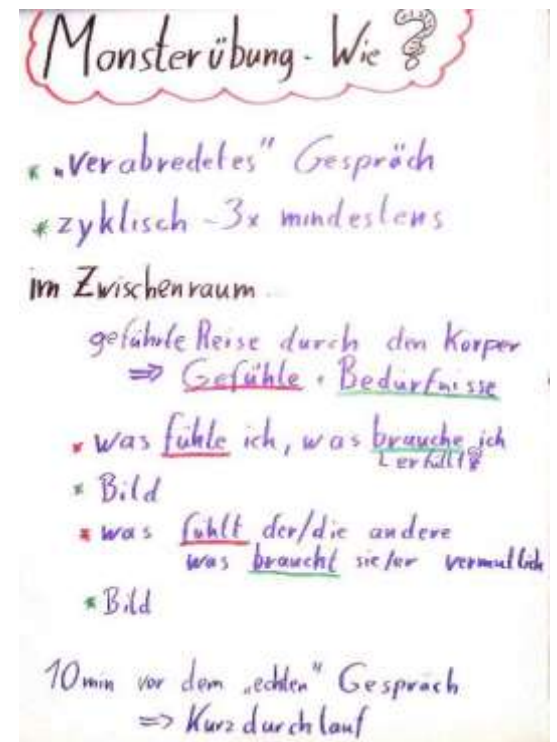 Monsterübung - Wie ?
* „verabredetes" Gespräch
* zyklisch - 3x mindestens
im Zwischenraum
geführte Reise durch den Körper
=> Gefühle + Bedürfnisse
* was fühle ich, was brauche ich
erfüllt?
* Bild
* was fühlt der/die andere
was braucht sie/er vermutlich
* Bild
10min vor dem „echten" Gespräch
=> Kurzdurchlauf